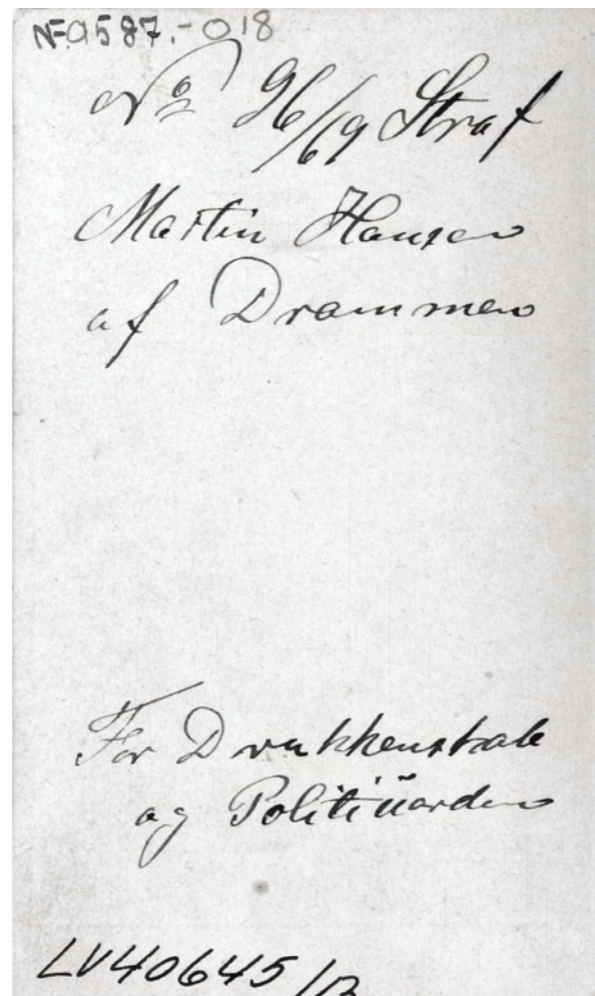 NF.01587.-018
No 96/69 Straf
Martin Hansen
af Drammen
For Drukkenskab
og Politiuorden
LV40645/12